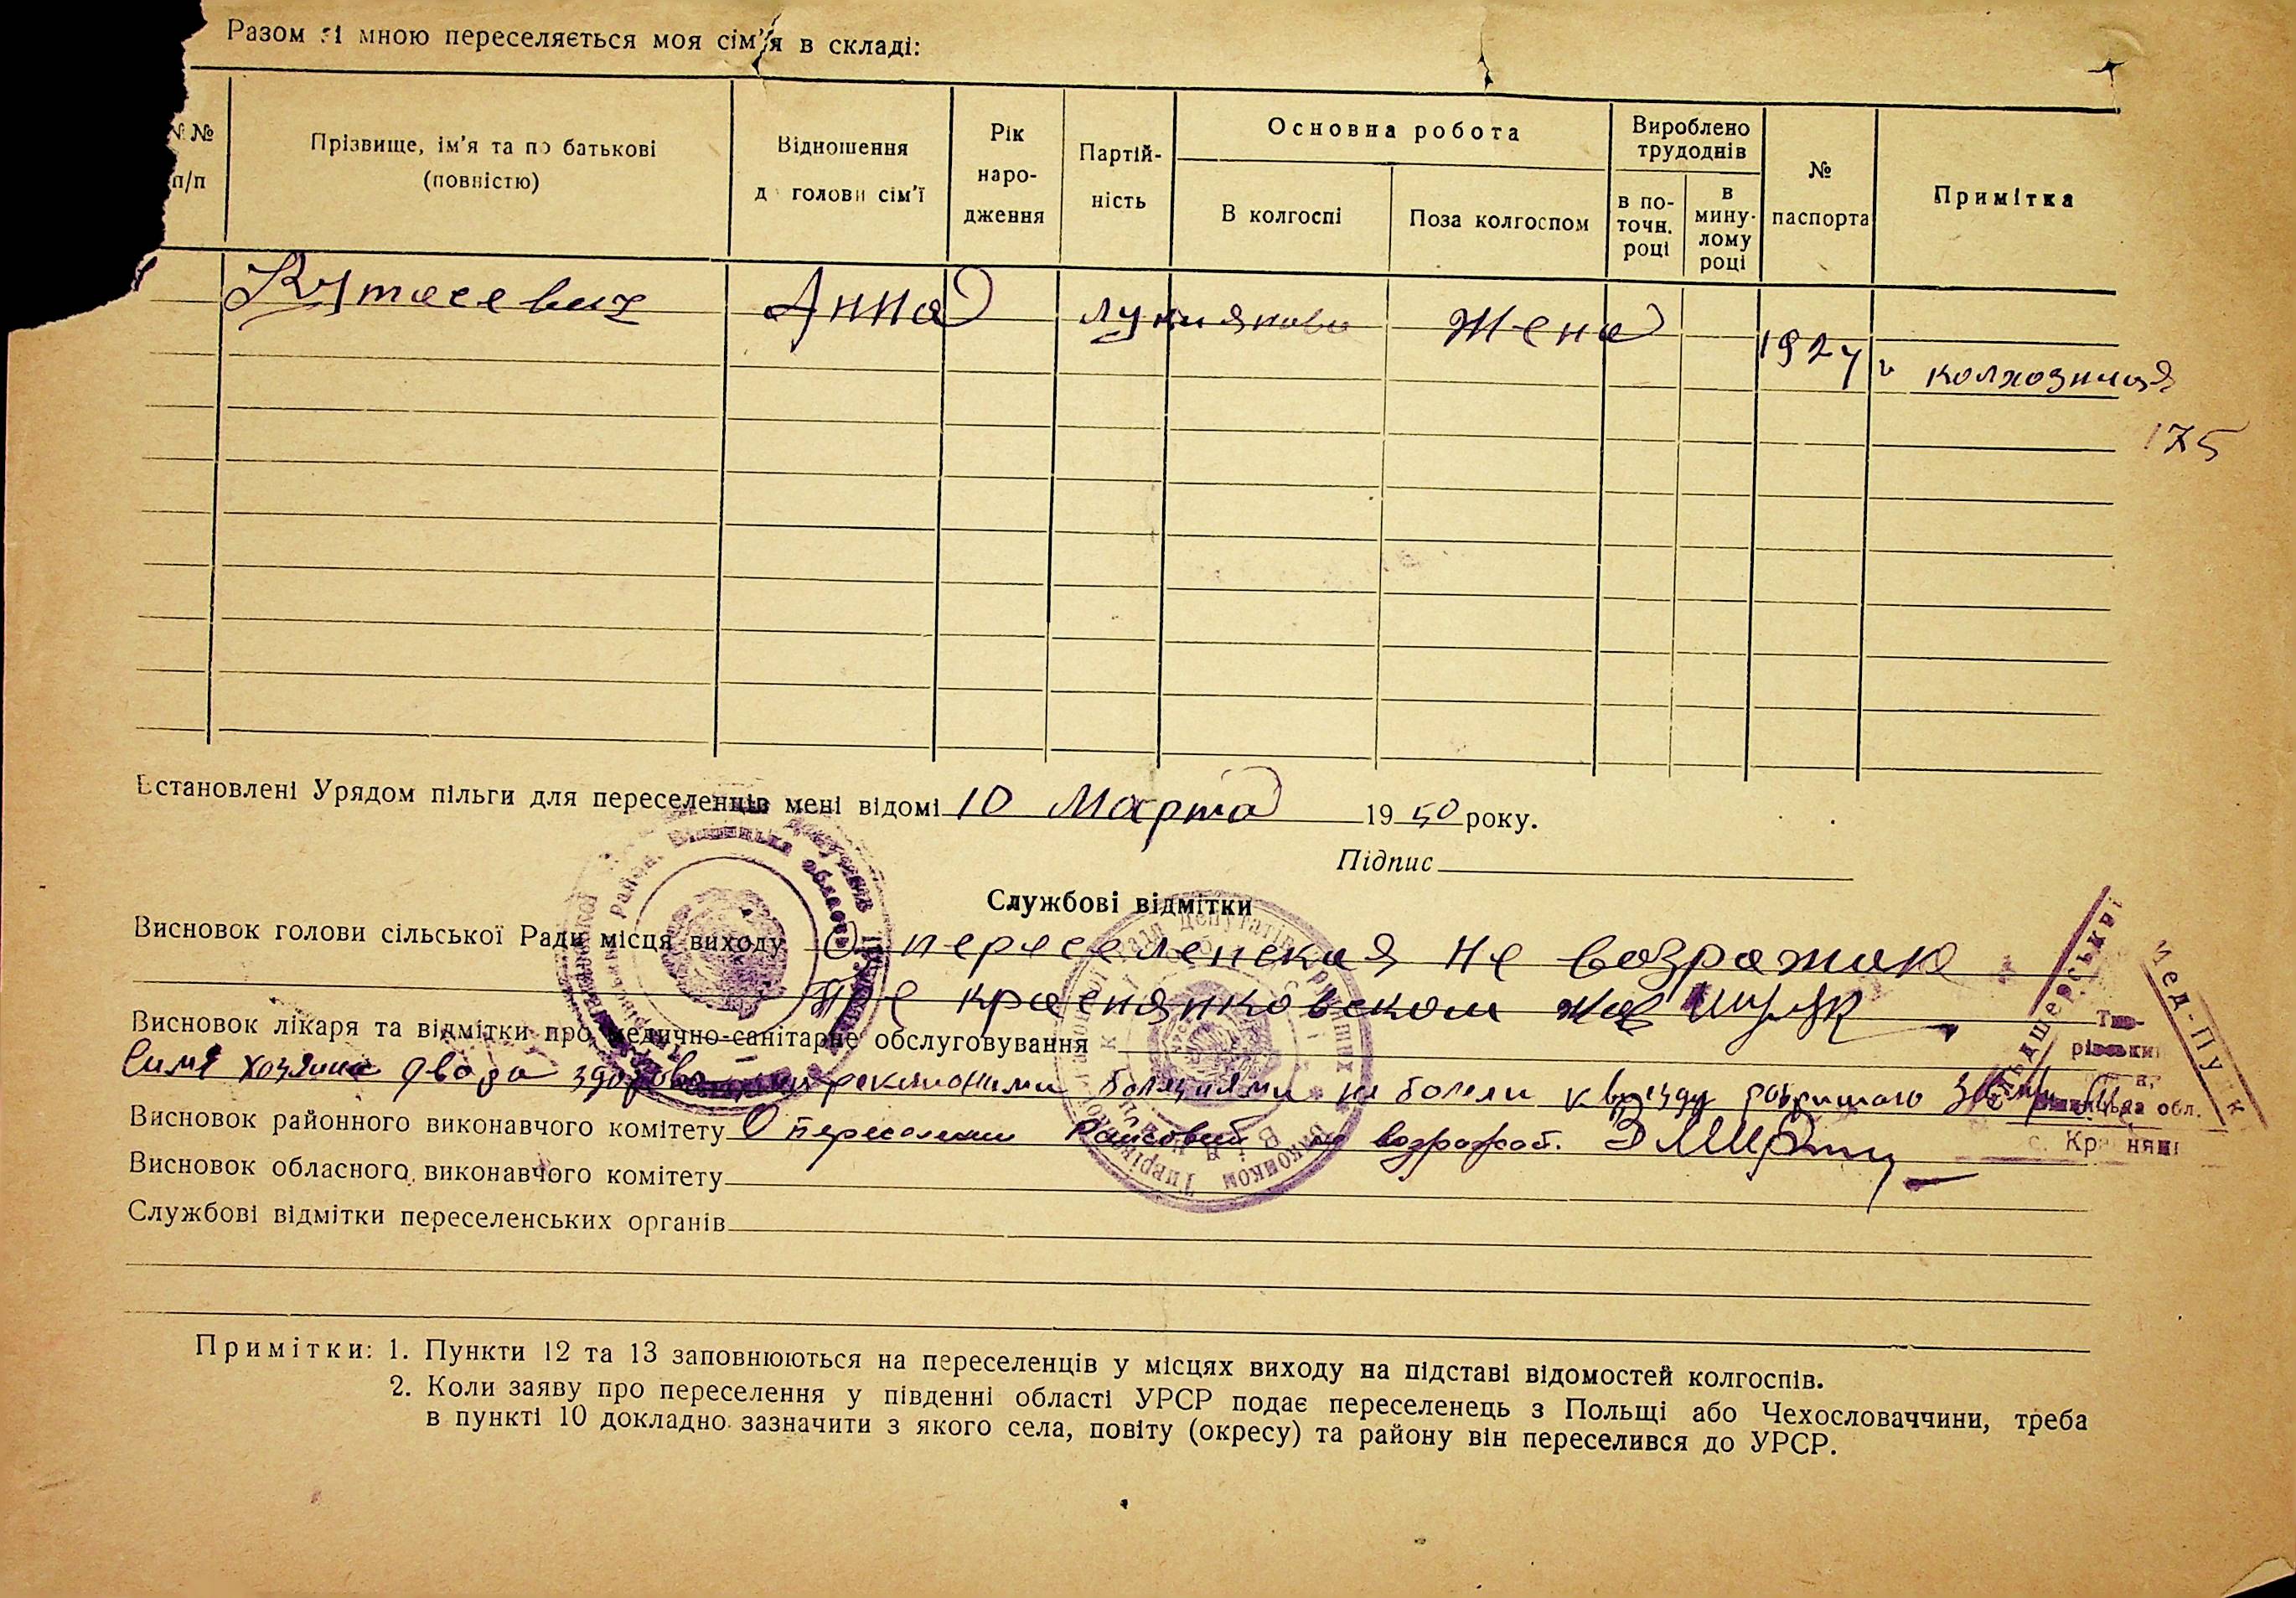 Разом зі мною переселяється моя сім'я в складі:
№№ п/п
Прізвище, ім'я та по батькові (повністю)
Відношення до голови сім'ї
Рік народження
Партій-
ність
Основна робота
В колгоспі
Поза колгоспом
Вироблено трудоднів
в по-
точн.
році
в
мину-
лому
році
№ паспорта
Примітка
Кутасевич Анна Жена 192 г колхозниця
175
Встановлені Урядом пільги для переселенців мені відомі 10 Марта 1950 року.
Підпис
Службові відмітки
Висновок голови сільської Ради місця виходу О переселенская не возражаю
Пре краснянковском
Висновок лікаря та відмітки про медично-санітарне обслуговування
двора не болели к
Висновок районного виконавчого комітету О переселении не возражает.
Висновок обласного виконавчого комітету
Службові відмітки переселенських органів
Примітки: 1. Пункти 12 та 13 заповнюються на переселенців у місцях виходу на підставі відомостей колгоспів.
2. Коли заяву про переселення у південні області УРСР подає переселенець з Польщі або Чехословаччини, треба
в пункті 10 докладно зазначити з якого села, повіту (окресу) та району він переселився до УРСР.